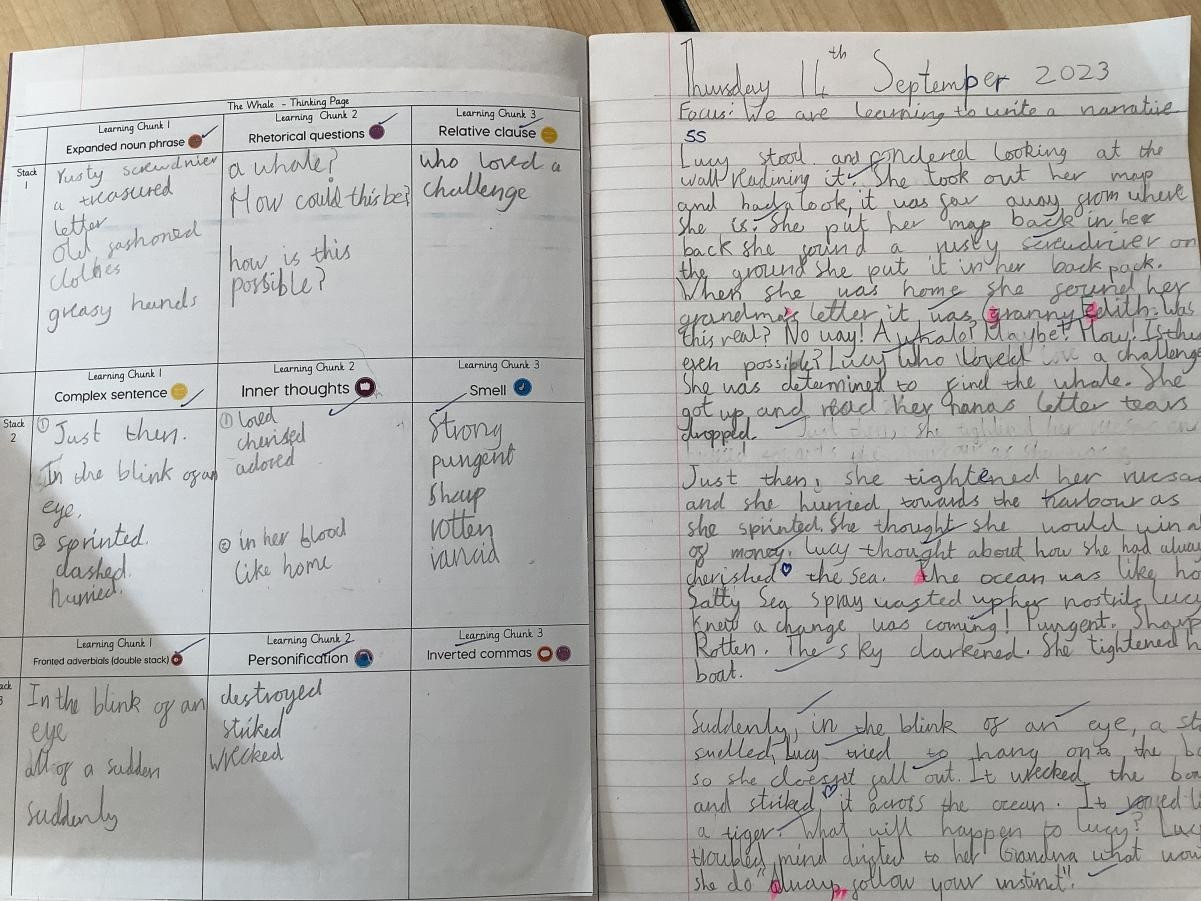 The Whale - Thinking Page
Learning Chunk 1
Expanded noun phrase
Learning Chunk 2
Rhetorical questions
Learning Chunk 3
Relative clause
Stack
1
rusty screwdrier
a treasured
letter
old fashoned
clothes
greasy hands
a whale?
How could this be?
how is this
possible?
who loved a
challenge
Learning Chunk 1
Complex sentence
Learning Chunk 2
Inner thoughts
Learning Chunk 3
Smell
Stack
2
① Just then.
In the blink of an
eye.
② sprinted.
dashed.
hurried.
① loved
cherised
adored
② in her blood
like home
Strong
pungent
Sharp
rotten
rancid
Learning Chunk 1
Fronted adverbials (double stack)
Learning Chunk 2
Personification
Learning Chunk 3
Inverted commas
ack
3
In the blink of an
eye
all of a sudden
suddenly
destroyed
striked
wrecked
Thursday 14th September 2023
Focus: We are learning to write a narrative
SS
Lucy stood and pondered looking at the
wall it. She took out her map
and had a look, it was far away from where
she is. She put her map back in her
back she found a rusty screwdriver on
the ground she put it in her back pack.
When she was home she found her
grandma's letter it was granny Edith. Was
this real? No way! A whale? Maybe? How! Is this
even possible? Lucy who loved a challenge
She was determined to find the whale. She
got up and read her nanas letter tears
dropped.
Just then, she tightened her
and she hurried towards the harbour as
she sprinted. She thought she would win a
of money. Lucy thought about how she had
cherished the sea. The ocean was like
Salty Sea spray wasted up her nostrils Lucy
knew a change was coming! Pungent. Sharp
Rotten. The sky darkened. She tightened
boat.
Suddenly, in the blink of an eye, a
swelled, Lucy tried to hang onto the
so she doesnt fall out. It wrecked the
and striked it across the ocean. It
a tiger. What will happen to Lucy?
troubled mind drifted to her Grandma what
she do "Always follow your instinct".